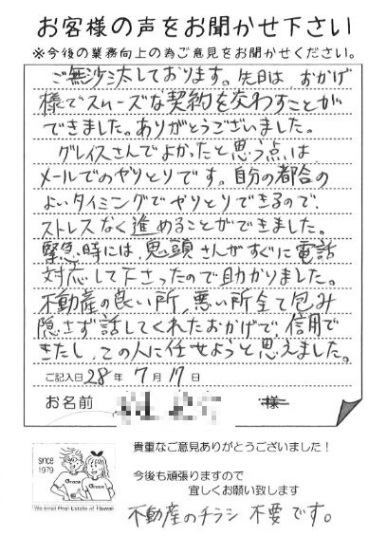 お客様の声をお聞かせ下さい
※今後の業務向上の為ご意見をお聞かせください。
ご無沙汰しております。先日は おかげ
様でスムーズな契約を交わすことが
できました。ありがとうございました。
グレイスさんでよかったと思う点は
メールでのやりとりです。自分の都合の
よいタイミングでやりとりできるので、
ストレスなく進めることができました。
緊急時には、鬼頭さんがすぐに電話
対応して下さったので助かりました。
不動産の良い所、悪い所全て包み
隠さず話してくれたおかげで、信用で
きたし、この人に任せようと思えました。
ご記入日 28 年 7 月 17 日
お名前 様
貴重なご意見ありがとうございました！
since
1979
Grace
Grace
今後も頑張りますので
宜しくお願い致します
We Small Real Estate of Hawaii
不動産のチラシ 不要です。